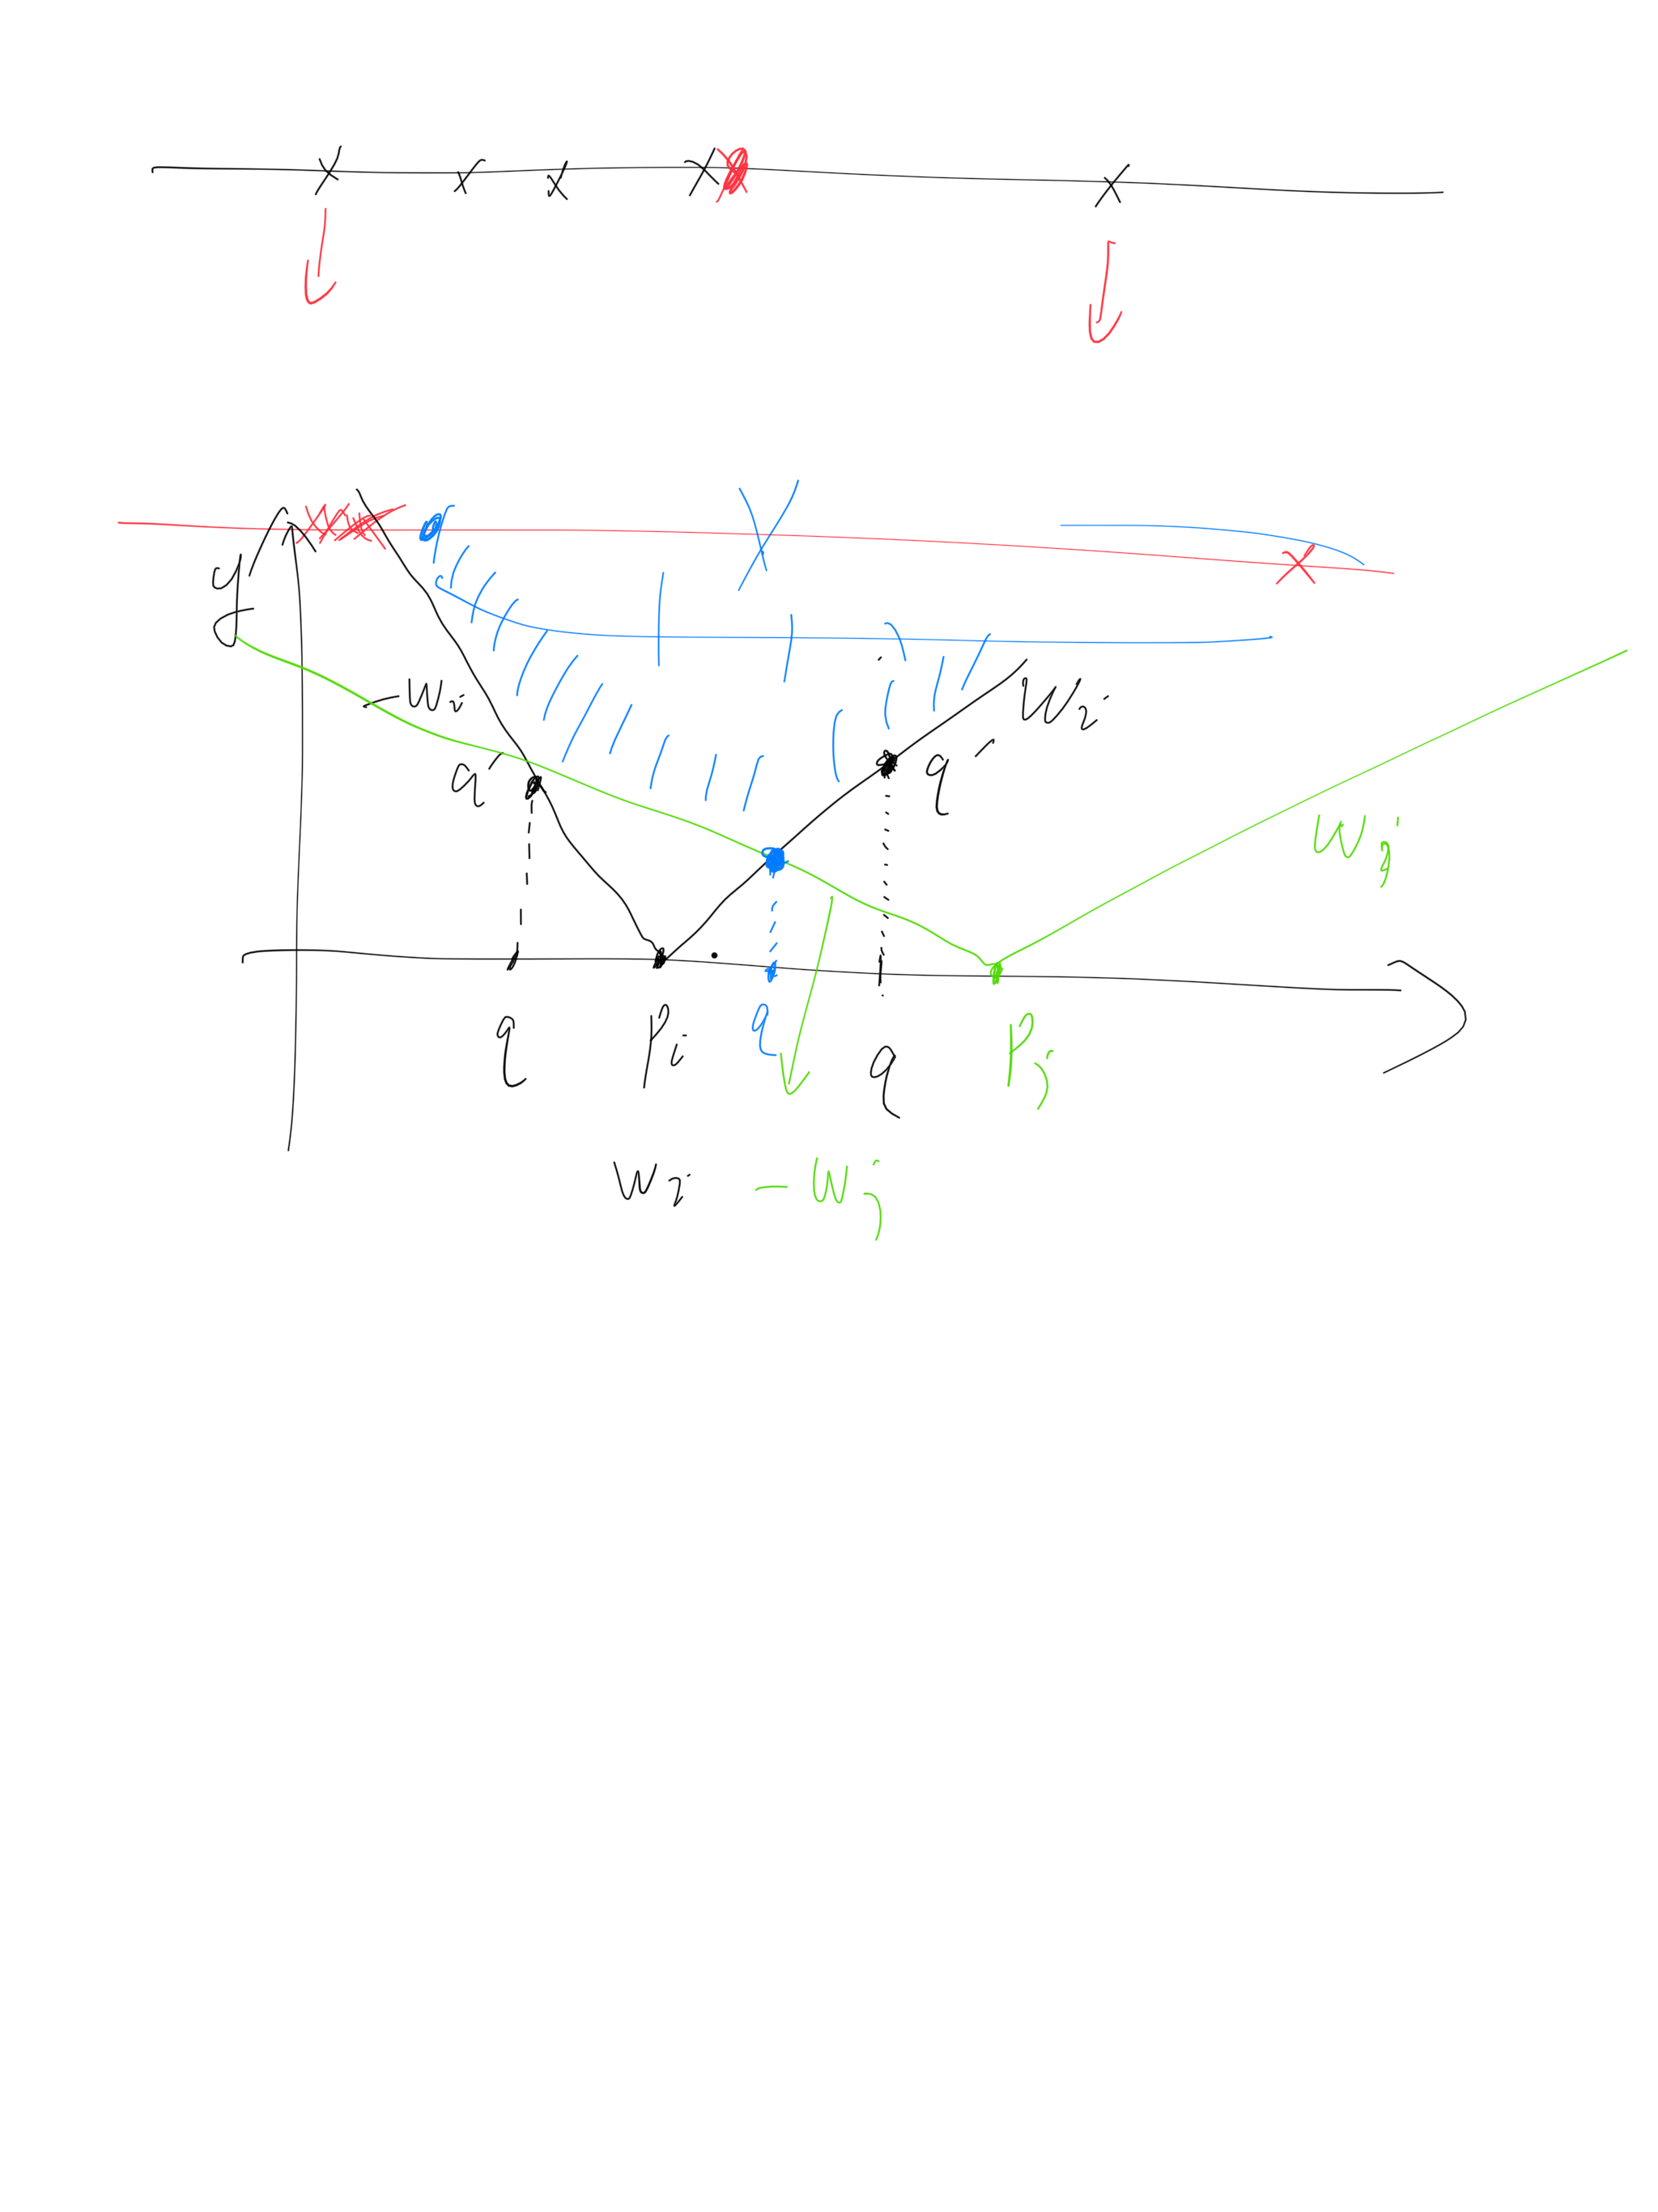 y
-wi
wi
q'
q'
wj
q
pi
q
q
pj
wi -wj